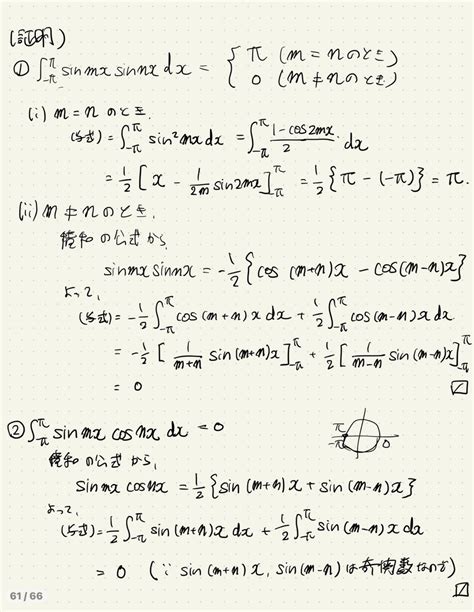 (証明)
① ∫_{-π}^{π} sin mx sin nx dx = { π (m = n のとき)
0 (m ≠ n のとき)
(i) m = n のとき.
(与式) = ∫_{-π}^{π} sin² mx dx = ∫_{-π}^{π} (1 - cos 2mx)/2 dx
= 1/2 [ x - 1/2m sin 2mx ]_{-π}^{π} = 1/2 { π - (-π) } = π.
(ii) m ≠ n のとき.
積和の公式から,
sin mx sin nx = -1/2 { cos (m+n)x - cos (m-n)x }
よって,
(与式) = -1/2 ∫_{-π}^{π} cos (m+n)x dx + 1/2 ∫_{-π}^{π} cos (m-n)x dx
= -1/2 [ 1/(m+n) sin (m+n)x ]_{-π}^{π} + 1/2 [ 1/(m-n) sin (m-n)x ]_{-π}^{π}
= 0
② ∫_{-π}^{π} sin mx cos nx dx = 0
π
-π 0
積和の公式から,
sin mx cos nx = 1/2 { sin (m+n)x + sin (m-n)x }
よって,
(与式) = 1/2 ∫_{-π}^{π} sin (m+n)x dx + 1/2 ∫_{-π}^{π} sin (m-n)x dx
= 0 (∵ sin (m+n)x, sin (m-n) は奇関数なので)
61 / 66